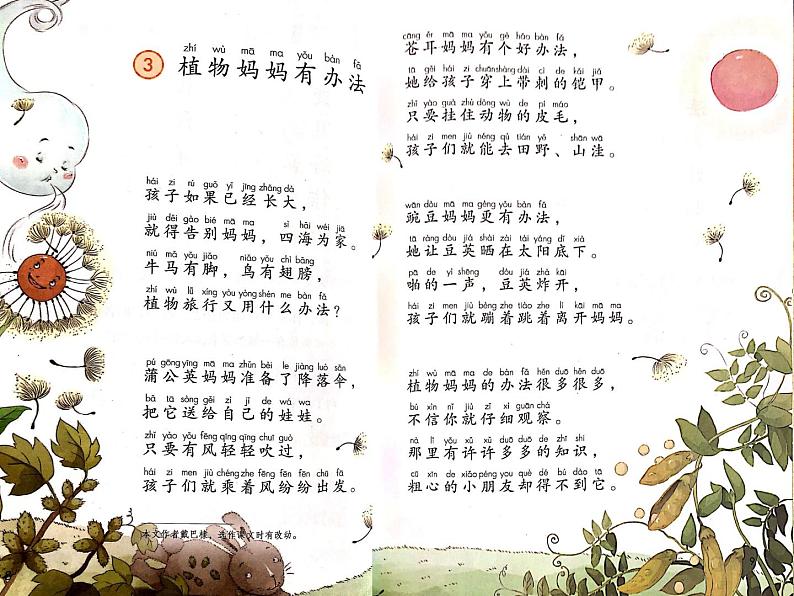 3
zhí wù mā ma yǒu bàn fǎ
植物妈妈有办法
hái zi rú guǒ yǐ jīng zhǎng dà
孩子如果已经长大，
jiù děi gào bié mā ma sì hǎi wéi jiā
就得告别妈妈，四海为家。
niú mǎ yǒu jiǎo niǎo yǒu chì bǎng
牛马有脚，鸟有翅膀，
zhí wù lǚ xíng yòu yòng shén me bàn fǎ
植物旅行又用什么办法？
pú gōng yīng mā ma zhǔn bèi le jiàng luò sǎn
蒲公英妈妈准备了降落伞，
bǎ tā sòng gěi zì jǐ de wá wa
把它送给自己的娃娃。
zhǐ yào yǒu fēng qīng qīng chuī guò
只要有风轻轻吹过，
hái zi men jiù chéng zhe fēng fēn fēn chū fā
孩子们就乘着风纷纷出发。
本文作者戴巴棣，选作课文时有改动。
cāng ěr mā ma yǒu gè hǎo bàn fǎ
苍耳妈妈有个好办法，
tā gěi hái zi chuān shàng dài cì de kǎi jiǎ
她给孩子穿上带刺的铠甲。
zhǐ yào guà zhù dòng wù de pí máo
只要挂住动物的皮毛，
hái zi men jiù néng qù tián yě shān wā
孩子们就能去田野、山洼。
wān dòu mā ma gèng yǒu bàn fǎ
豌豆妈妈更有办法，
tā ràng dòu jiá shài zài tài yáng dǐ xià
她让豆荚晒在太阳底下。
pā de yì shēng dòu jiá zhà kāi
啪的一声，豆荚炸开，
hái zi men jiù bèng zhe tiào zhe lí kāi mā ma
孩子们就蹦着跳着离开妈妈。
zhí wù mā ma de bàn fǎ hěn duō hěn duō
植物妈妈的办法很多很多，
bú xìn nǐ jiù zǐ xì guān chá
不信你就仔细观察。
nà lǐ yǒu xǔ xǔ duō duō de zhī shi
那里有许许多多的知识，
cū xīn de xiǎo péng you què dé bú dào tā
粗心的小朋友却得不到它。